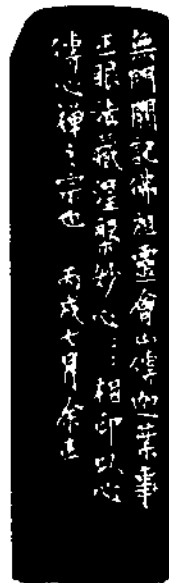 無門關記佛祖靈會山傳迦葉事
正眼法藏涅槃妙心：：相印以心
傳心禪之宗也　丙戌七月余正